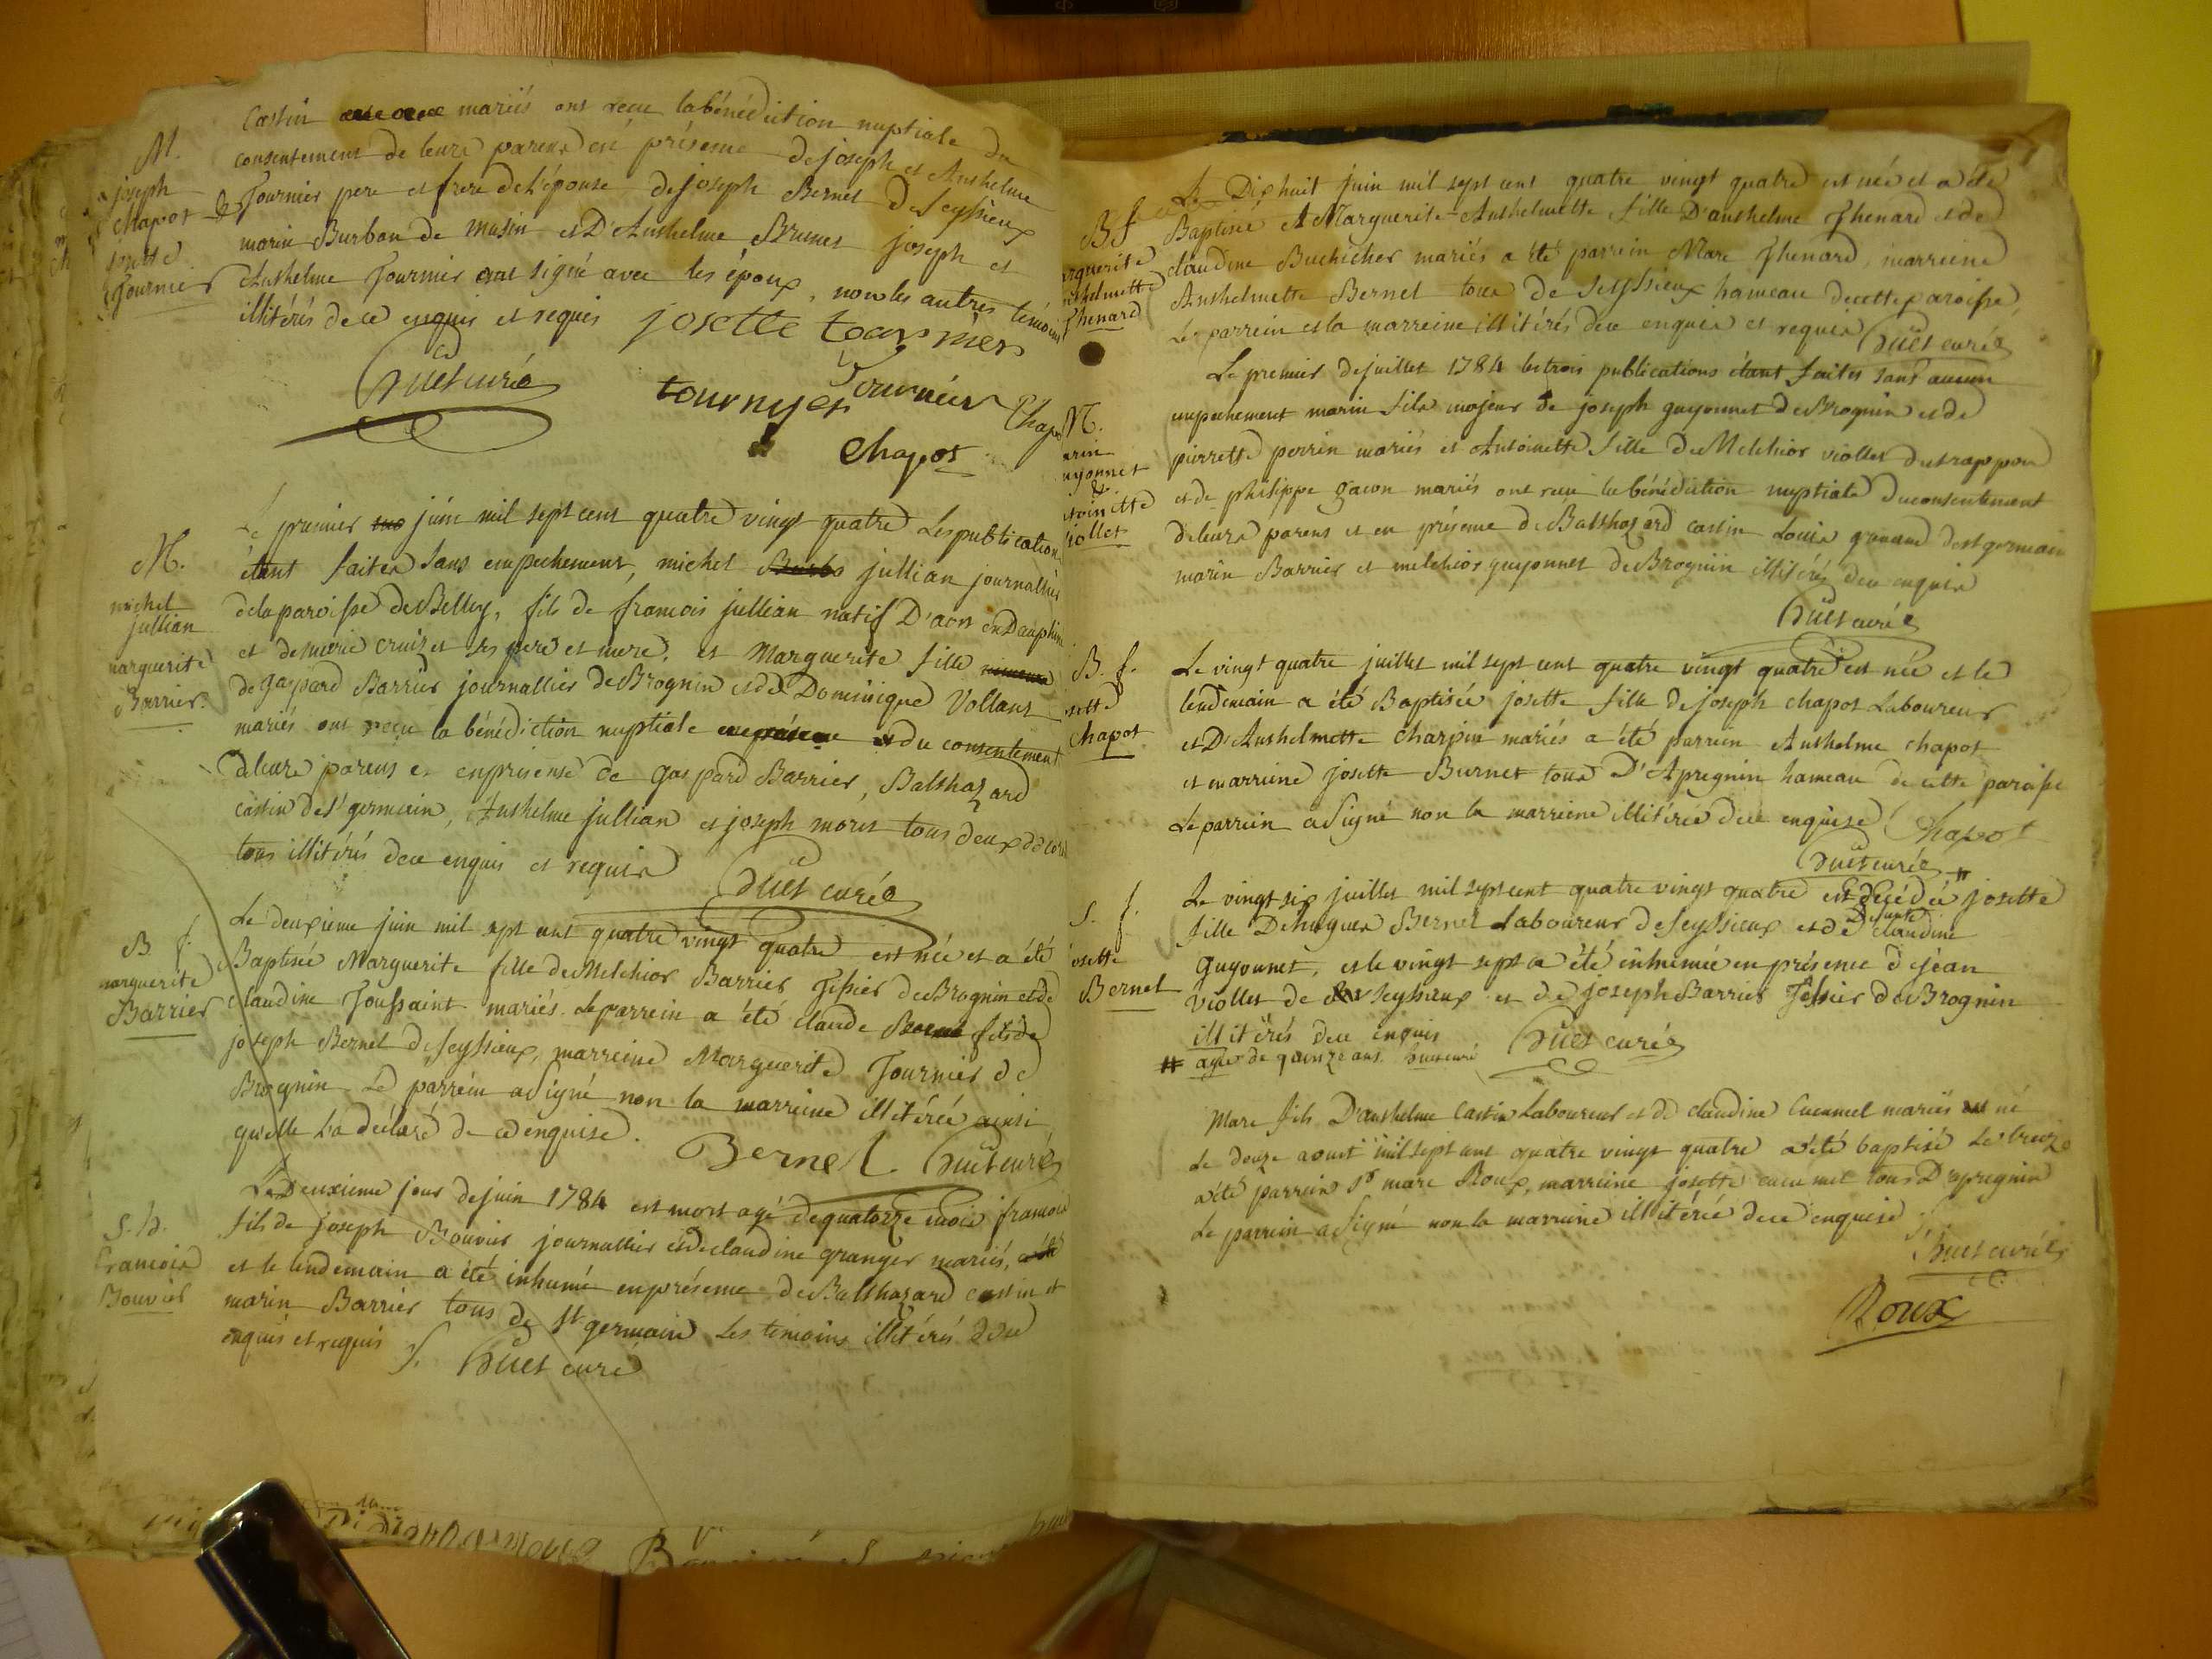 M.
joseph
chapot &
josette
Tournier
Castin mariés ont reçu la bénédiction nuptiale du
consentement de leurs parens en présence de joseph et Anthelme
Tournier pere et frere de l'épouse de joseph Bernel de Seyssieux
marin Burban de musin et D'Anthelme Brunet joseph et
Anthelme Tournier ont signé avec les époux, non les autres témoins
illitérés de ce enquis et requis josette tournier
huet curé tournyer Tournier Chapo
Chapot
M.
michel
jullian
marguerite
Barrier.
Le premier juin mil sept cent quatre vingt quatre Les publications
étant faites sans empechement, michel jullian journallier
de la paroisse de Belley, fils de francois jullian natif D'aost en Dauphiné
et de marie cruizet ses pere et mere, et Marguerite fille
de gaspard Barrier journallier de Brognin et de Dominique Vollant
mariés ont reçu la bénédiction nuptiale du consentement
de leurs parens et en présense de gaspard Barrier, Balthazard
castin de st germain, Anthelme jullian et joseph moret tous deux de
tous illitérés de ce enquis et requis
huet curé
B f.
marguerite
Barrier
Le deuxieme juin mil sept cent quatre vingt quatre est née et a été
Baptisée Marguerite fille de Melchior Barrier Tessier de Brognin et de
claudine Toussaint mariés. Le parrein a été claude fils de
joseph Bernel de Seyssieux, marreine Marguerite Tournier de
Brognin Le parrein a signé non la marreine illitérée ainsi
qu'elle l'a déclaré de ce enquise.
Bernel huet curé
S. h.
francois
Bouvier
Le Deuxieme jour de juin 1784 est mort agé de quatorze mois francois
fils de joseph Bouvier journallier et de claudine granger mariés,
et le lendemain a été inhumé en présence de Balthazard castin et
marin Barrier tous de st germain Les temoins illitérés de ce
enquis et requis huet curé
B f
marguerite
anthelmette
Thenard
Le Dix huit juin mil sept cent quatre vingt quatre est née et a été
Baptisée Marguerite Anthelmette fille D'anthelme Thenard et de
claudine Buchicher mariés a été parrein Marc Thenard, marreine
Anthelmette Bernel tous de Seyssieux hameau de cette paroisse,
Le parrein et la marreine illitérés de ce enquis et requis huet curé
M.
arin
uyonnet
&
toinette
iollet
Le premier de juillet 1784 les trois publications étant faites sans aucun
empechement marin fils majeur de joseph guyonnet de Brognin et de
pierrette perrin mariés et Antoinette fille de Melchior viollet
et de philippe gacon mariés ont reçu la bénédiction nuptiale du consentement
de leurs parens et en présence de Balthazard castin Louis de st germain
marin Barrier et melchior guyonnet de Brognin illitérés de ce enquis
huet curé
B. f.
sette
chapot
Le vingt quatre juillet mil sept cent quatre vingt quatre est née et le
lendemain a été Baptisée josette fille de joseph chapot Laboureur
et D'Anthelmette charpin mariés a été parrein Anthelme chapot
et marreine josette Burnet tous D'Apregnin hameau de cette paroisse
Le parrein a signé non la marreine illitérée de ce enquise Chapot
huet curé
S. f.
osette
Bernel
Le vingt six juillet mil sept cent quatre vingt quatre est décédée # josette
fille De hugues Bernel Laboureur de Seyssieux et de défunte claudine
guyonnet, et le vingt sept a été inhumée en présence de jean
viollet de Seyssieux et de joseph Barrier Tessier de Brognin
illitérés de ce enquis huet curé
# agée de quinze ans. huet curé
Marc fils D'anthelme Castin Laboureur et de claudine Cucumel mariés né
Le douze aoust mil sept cent quatre vingt quatre a été baptisé Le treize
a été parrein Sr marc Roux, marreine josette cucumel tous D'apregnin
Le parrein a signé non la marreine illitérée de ce enquise
huet curé
Roux